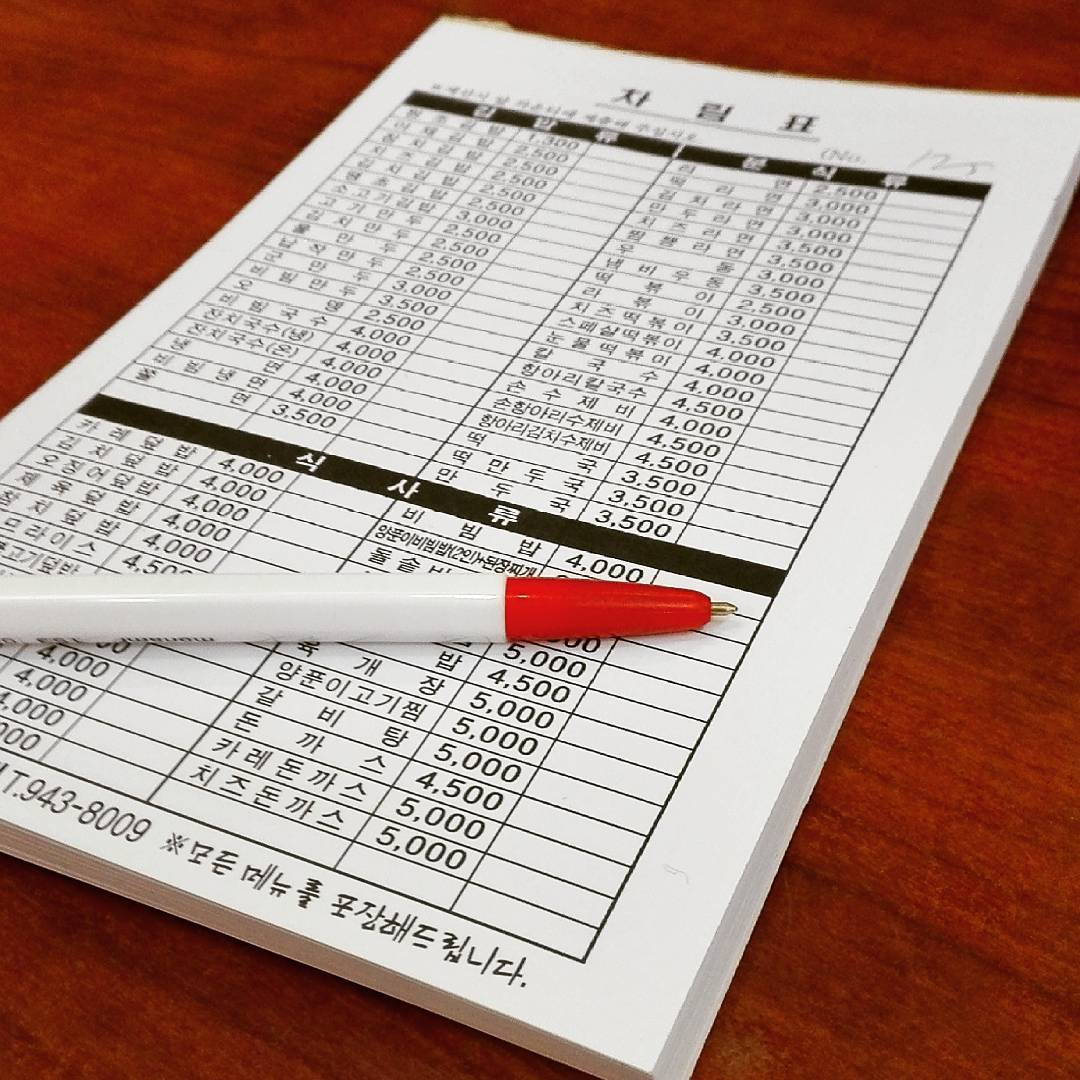 차 림 표
(No. 125
김 밥 류
원조김밥 1,300
야채김밥 2,500
치즈김밥 2,500
김치김밥 2,500
땡초김밥 2,500
소고기김밥 3,000
고기만두 2,500
김치만두 2,500
물만두 2,500
납작만두 2,500
군만두 3,000
비빔만두 3,500
오뎅 2,500
비빔국수 4,000
잔치국수(냉) 4,000
잔치국수(온) 4,000
냉면 4,000
비빔냉면 4,000
쫄면 3,500
분 식 류
라면 2,500
떡라면 3,000
김치라면 3,000
만두라면 3,000
치즈라면 3,500
짬뽕라면 3,500
우동 3,000
냄비우동 3,500
떡볶이 2,500
라볶이 3,000
치즈떡볶이 3,500
스페샬떡볶이 4,000
눈물떡볶이 4,000
칼국수 4,000
항아리칼국수 4,500
손수제비 4,000
손항아리수제비 4,500
항아리김치수제비 4,500
떡국 3,500
떡만두국 3,500
만두국 3,500
식 사 류
카레덮밥 4,000
김치덮밥 4,000
오징어덮밥 4,000
제육덮밥 4,000
참치덮밥 4,500
므라이스
고기덮밥
4,000
4,000
4,000
비빔밥 4,000
양푼이비빔밥(2인)+된장찌개
돌솥비
밥 5,000
육개장 4,500
양푼이고기찜 5,000
갈비탕 5,000
돈까스 4,500
카레돈까스 5,000
치즈돈까스 5,000
T.943-8009 ※모든 메뉴를 포장해드립니다.